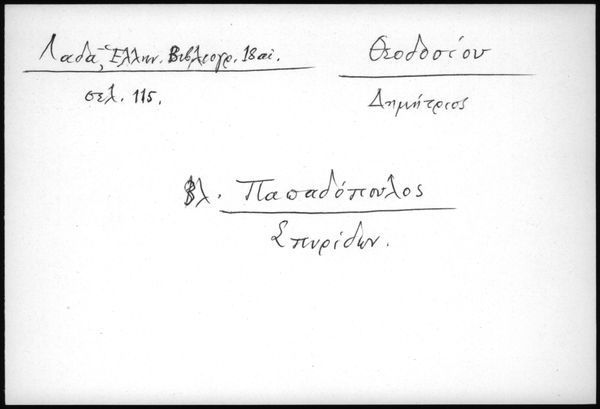 Λαδᾶ, Ἑλλην. Βιβλιογρ. 18 αἰ.
σελ. 115.
Θεοδοσίου
Δημήτριος
Βλ. Παπαδόπουλος
Σπυρίδων.